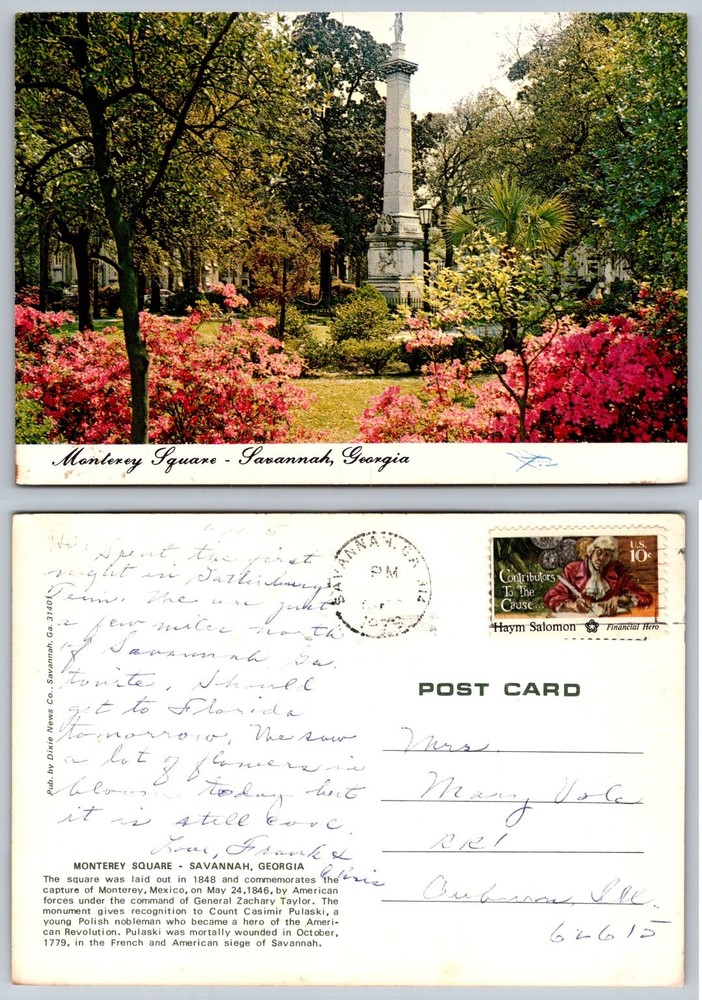 Monterey Square - Savannah, Georgia
Hi; Spent the first
night in Gatlinburg
Tenn. We are just
a few miles north
of Savannah, Ga.
tonite. Should
get to Florida
tomorrow. We saw
a lot of flowers in
bloom today but
it is still cool.
Love, Frank &
MONTEREY SQUARE - SAVANNAH, GEORGIA
The square was laid out in 1848 and commemorates the
capture of Monterey, Mexico, on May 24,1846, by American
forces under the command of General Zachary Taylor. The
monument gives recognition to Count Casimir Pulaski, a
young Polish nobleman who became a hero of the Ameri-
can Revolution. Pulaski was mortally wounded in October,
1779, in the French and American siege of Savannah.
Pub. by Dixie News Co., Savannah, Ga. 31401
SAVANNAH, GA 314
PM
U.S.
10c
Contributors
To The
Cause...
Haym Salomon Financial Hero
POST CARD
Mrs.
Mary
RR1
Auburn, Ill.
62615